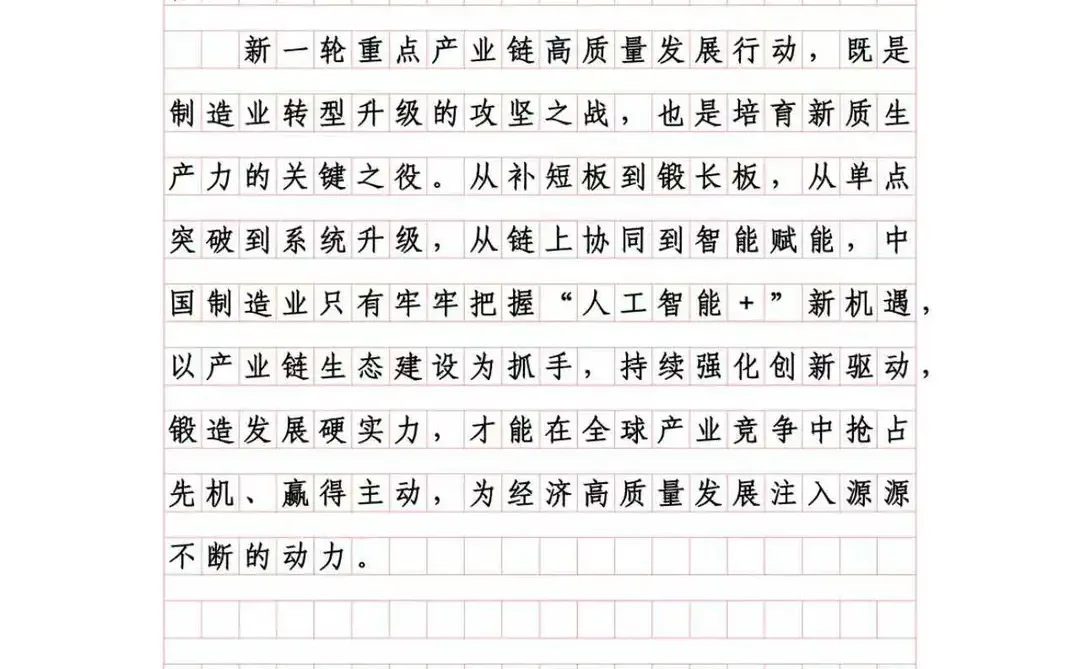 新一轮重点产业链高质量发展行动，既是
制造业转型升级的攻坚之战，也是培育新质生
产力的关键之役。从补短板到锻长板，从单点
突破到系统升级，从链上协同到智能赋能，中
国制造业只有牢牢把握“人工智能+”新机遇，
以产业链生态建设为抓手，持续强化创新驱动，
锻造发展硬实力，才能在全球产业竞争中抢占
先机、赢得主动，为经济高质量发展注入源源
不断的动力。